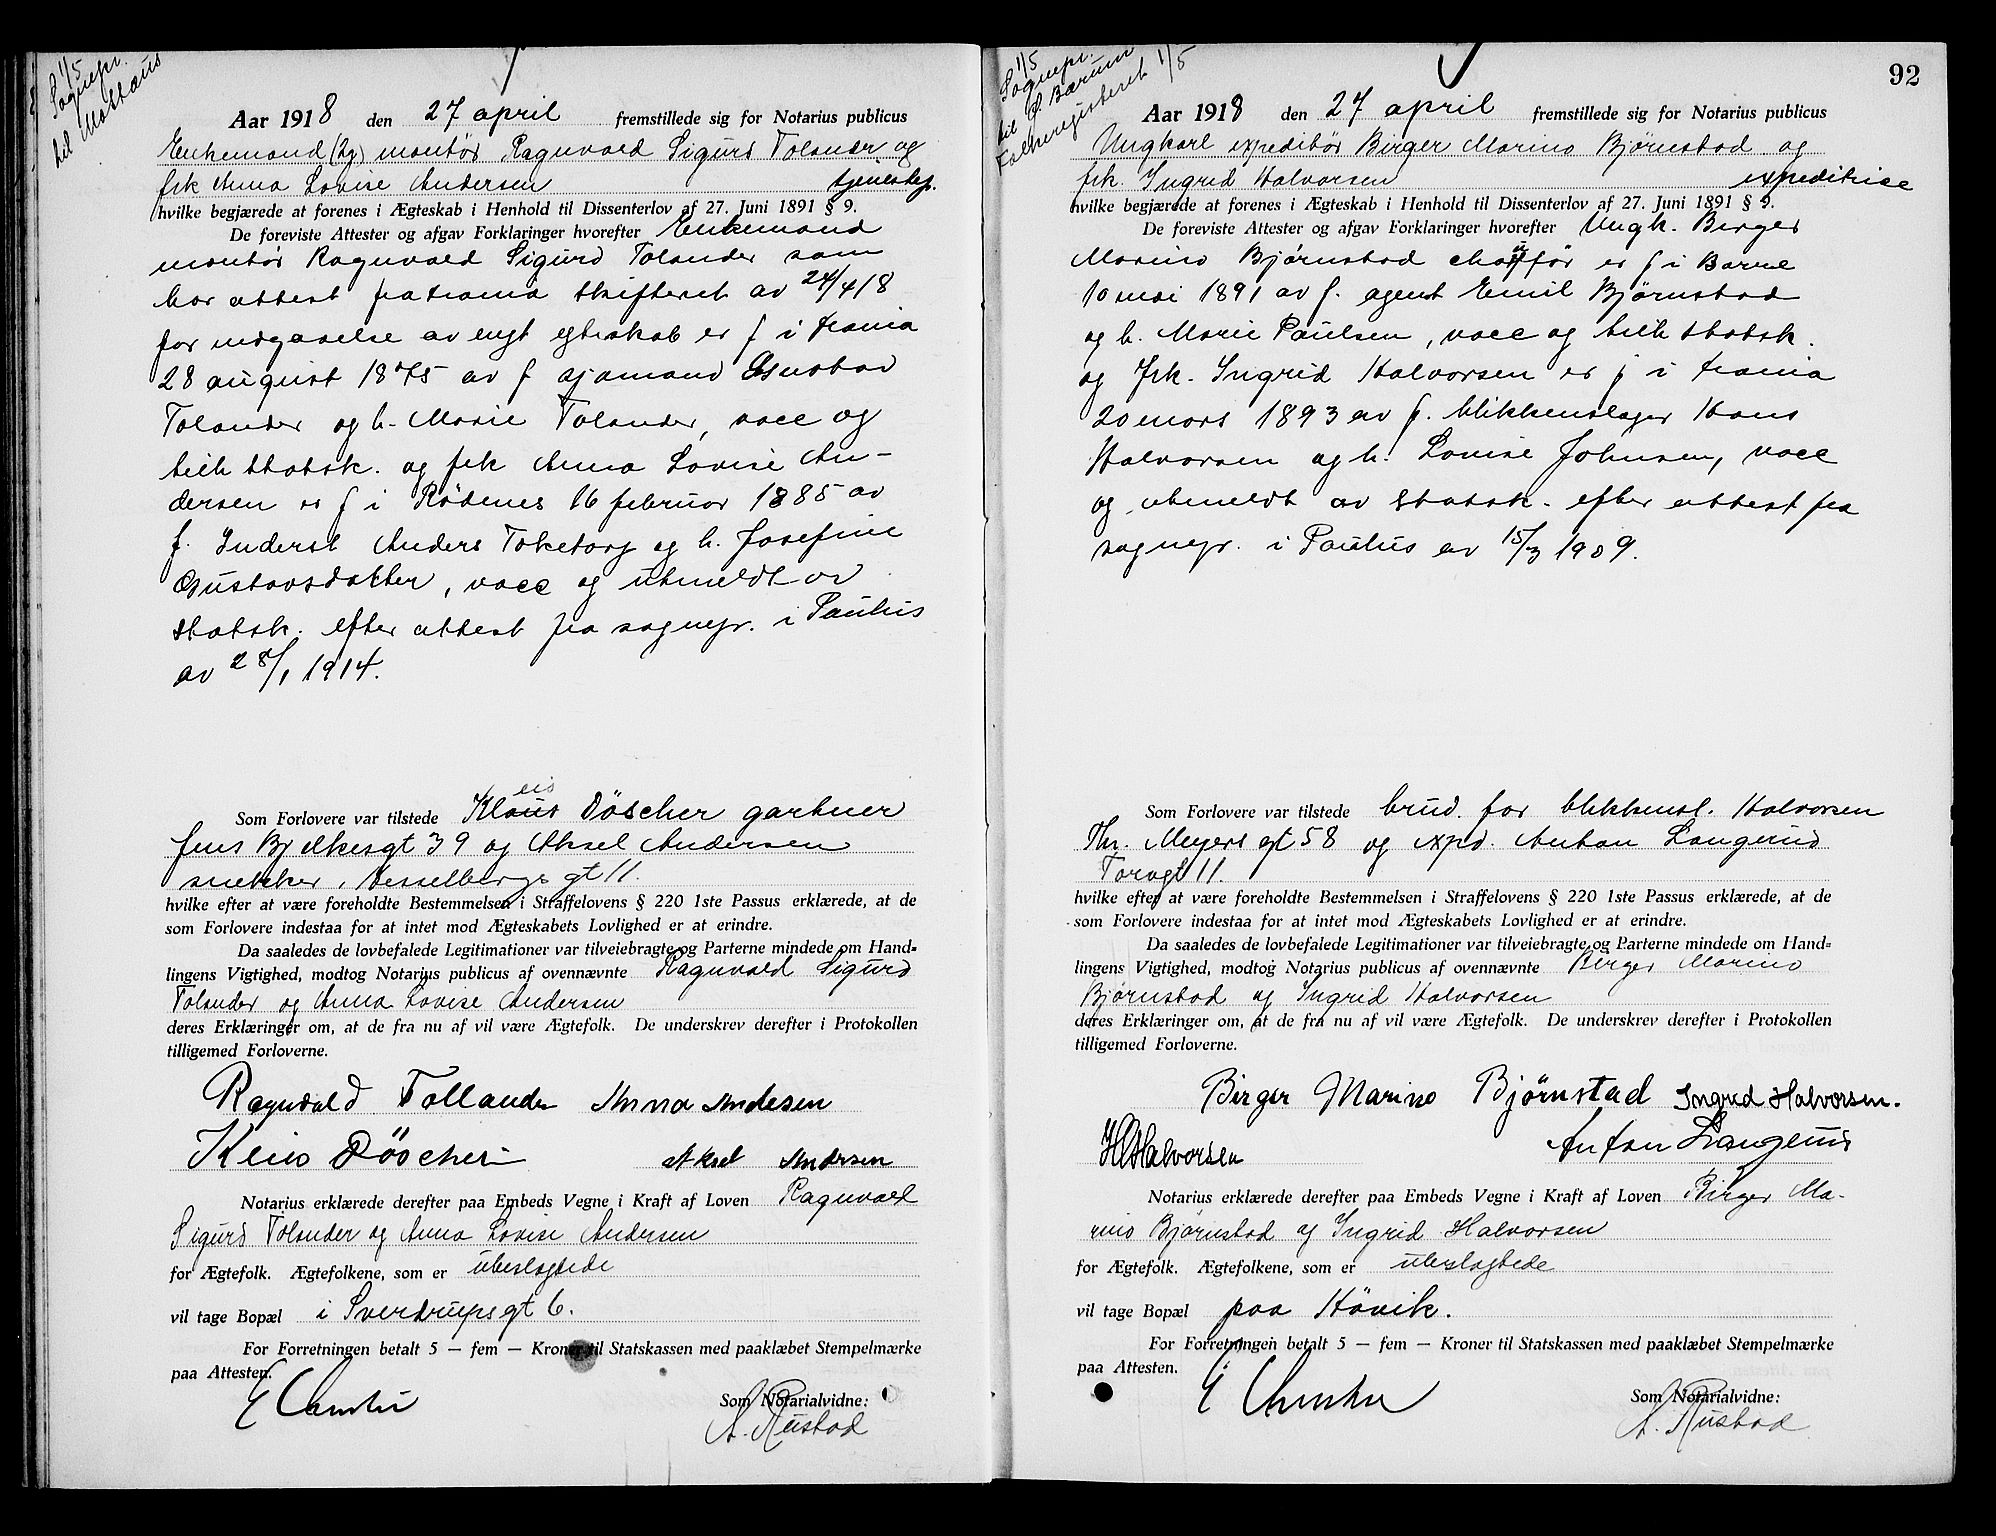 1/5
Sognepr.
til Matthæus
Aar 1918 den 27 april fremstillede sig for Notarius publicus
Enkemand (2g) montör Ragnvald Sigurd Tolander og
frk Anna Lovise Andersen tjenestep.
hvilke begjærede at forenes i Ægteskab i Henhold til Dissenterlov af 27. Juni 1891 § 9.
De foreviste Attester og afgav Forklaringer hvorefter Enkemand
montör Ragnvald Sigurd Tolander som
har attest fra Krania skifteret av 24/4 18
for indgaaelse av nyt egteskab er f i Krania
28 august 1875 av f sjømand Gustav
Tolander og h. Marie Tolander, vacc og
tilh statsk. og frk Anna Lovise An-
dersen er f i Rödenes 16 februar 1885 av
f. Inderst Anders Toketorp og h. Josefine
Gustavsdatter, vacc og utmeldt av
statsk. efter attest fra sognepr. i Paulus
av 28/1 1914.
Som Forlovere var tilstede Klaus eis Döscher gartner
Jens Bjelkesgt 39 og Aksel Andersen
snekker, Hesselbergs gt 11.
hvilke efter at være foreholdte Bestemmelsen i Straffelovens § 220 1ste Passus erklærede, at de
som Forlovere indestaa for at intet mod Ægteskabets Lovlighed er at erindre.
Da saaledes de lovbefalede Legitimationer var tilveiebragte og Parterne mindede om Hand-
lingens Vigtighed, modtog Notarius publicus af ovennævnte Ragnvald Sigurd
Tolander og Anna Lovise Andersen
deres Erklæringer om, at de fra nu af vil være Ægtefolk. De underskrev derefter i Protokollen
tilligemed Forloverne.
Ragnvald Tollander Anna Andesen
Döscher Aksel Andersen
Notarius erklærede derefter paa Embeds Vegne i Kraft af Loven Ragnvald
Sigurd Tolander og Anna Lovise Andersen
for Ægtefolk. Ægtefolkene, som er ubeslagtede
vil tage Bopæl i Sverdrupsgt 6.
For Forretningen betalt 5 — fem — Kroner til Statskassen med paaklæbet Stempelmærke
paa Attesten.
Som Notarialvidne:
A. Rustad
92
1/5
Sognepr.
til Ø. Bærum
Folkeregisteret 1/5
Aar 1918 den 27 april fremstillede sig for Notarius publicus
Ungkarl expeditör Birger Marino Björnstad og
frk. Ingrid Halvorsen expeditrice
hvilke begjærede at forenes i Ægteskab i Henhold til Dissenterlov af 27. Juni 1891 § 9.
De foreviste Attester og afgav Forklaringer hvorefter Ungk. Birger
Marino Björnstad chaufför er f i Borre
10 mai 1891 av f. agent Emil Björnstad
og h. Marie Paulsen, vacc og tilh statsk.
og frk. Ingrid Halvorsen er f i Krania
20 mars 1893 av f. blikkenslager Hans
Halvorsen og h. Lovise Johnsen, vacc
og utmeldt av statsk. efter attest fra
sognepr. i Paulus av 15/3 1909.
Som Forlovere var tilstede brud. far blikkensl. Halvorsen
Thr. Meyers gt 58 og expd. Anton Langerud
Torvgt 11.
hvilke efter at være foreholdte Bestemmelsen i Straffelovens § 220 1ste Passus erklærede, at de
som Forlovere indestaa for at intet mod Ægteskabets Lovlighed er at erindre.
Da saaledes de lovbefalede Legitimationer var tilveiebragte og Parterne mindede om Hand-
lingens Vigtighed, modtog Notarius publicus af ovennævnte Birger Marino
Björnstad og Ingrid Halvorsen
deres Erklæringer om, at de fra nu af vil være Ægtefolk. De underskrev derefter i Protokollen
tilligemed Forloverne.
Birger Marino Björnstad Ingrid Halvorsen.
H Halvorsen Anton Langerud
Notarius erklærede derefter paa Embeds Vegne i Kraft af Loven Birger Ma-
rino Björnstad og Ingrid Halvorsen
for Ægtefolk. Ægtefolkene, som er ubeslagtede
vil tage Bopæl paa Hövik.
For Forretningen betalt 5 — fem — Kroner til Statskassen med paaklæbet Stempelmærke
paa Attesten.
Som Notarialvidne:
A. Rustad